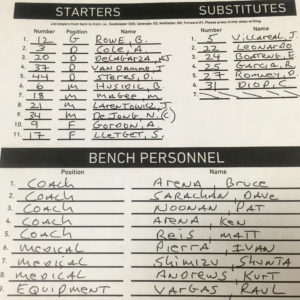 STARTERS
List players from back to front, i.e. Goalkeeper (GK), Defender (D), Midfielder (M), Forward (F). Please press firmly when writing.
Number Position Name
1. 12 G ROWE, B.
2. 3 D COLE, A.
3. 20 D DELAGARZA, AJ
4. 37 D VAN DAMME, J
5. 44 D STERES, D.
6. 6 M HUSIDIC, B
7. 18 M MAGEE, M
8. 21 M LARENTOWICZ, J
9. 34 M DE JONG, N. (C)
10. 9 F GORDON, A
11. 17 F LLETGET, S.
SUBSTITUTES
Number Name
1. 5 VILLAREAL, J.
2. 22 LEONARDO
3. 24 BOATENG, E
4. 25 GARCIA, R
5. 27 ROMNEY, D
6. 31 DIOP, C
BENCH PERSONNEL
Position Name
1. COACH ARENA, BRUCE
2. COACH SARACHAN, DAVE
3. COACH NOONAN PAT
4. COACH ARENA, KEN
5. COACH REIS MATT
6. MEDICAL PIERRA, IVAN
7. MEDICAL SHIMIZU, SHUNTA
8. MEDICAL ANDREWS, KURT
9. EQUIPMENT VARGAS RAUL